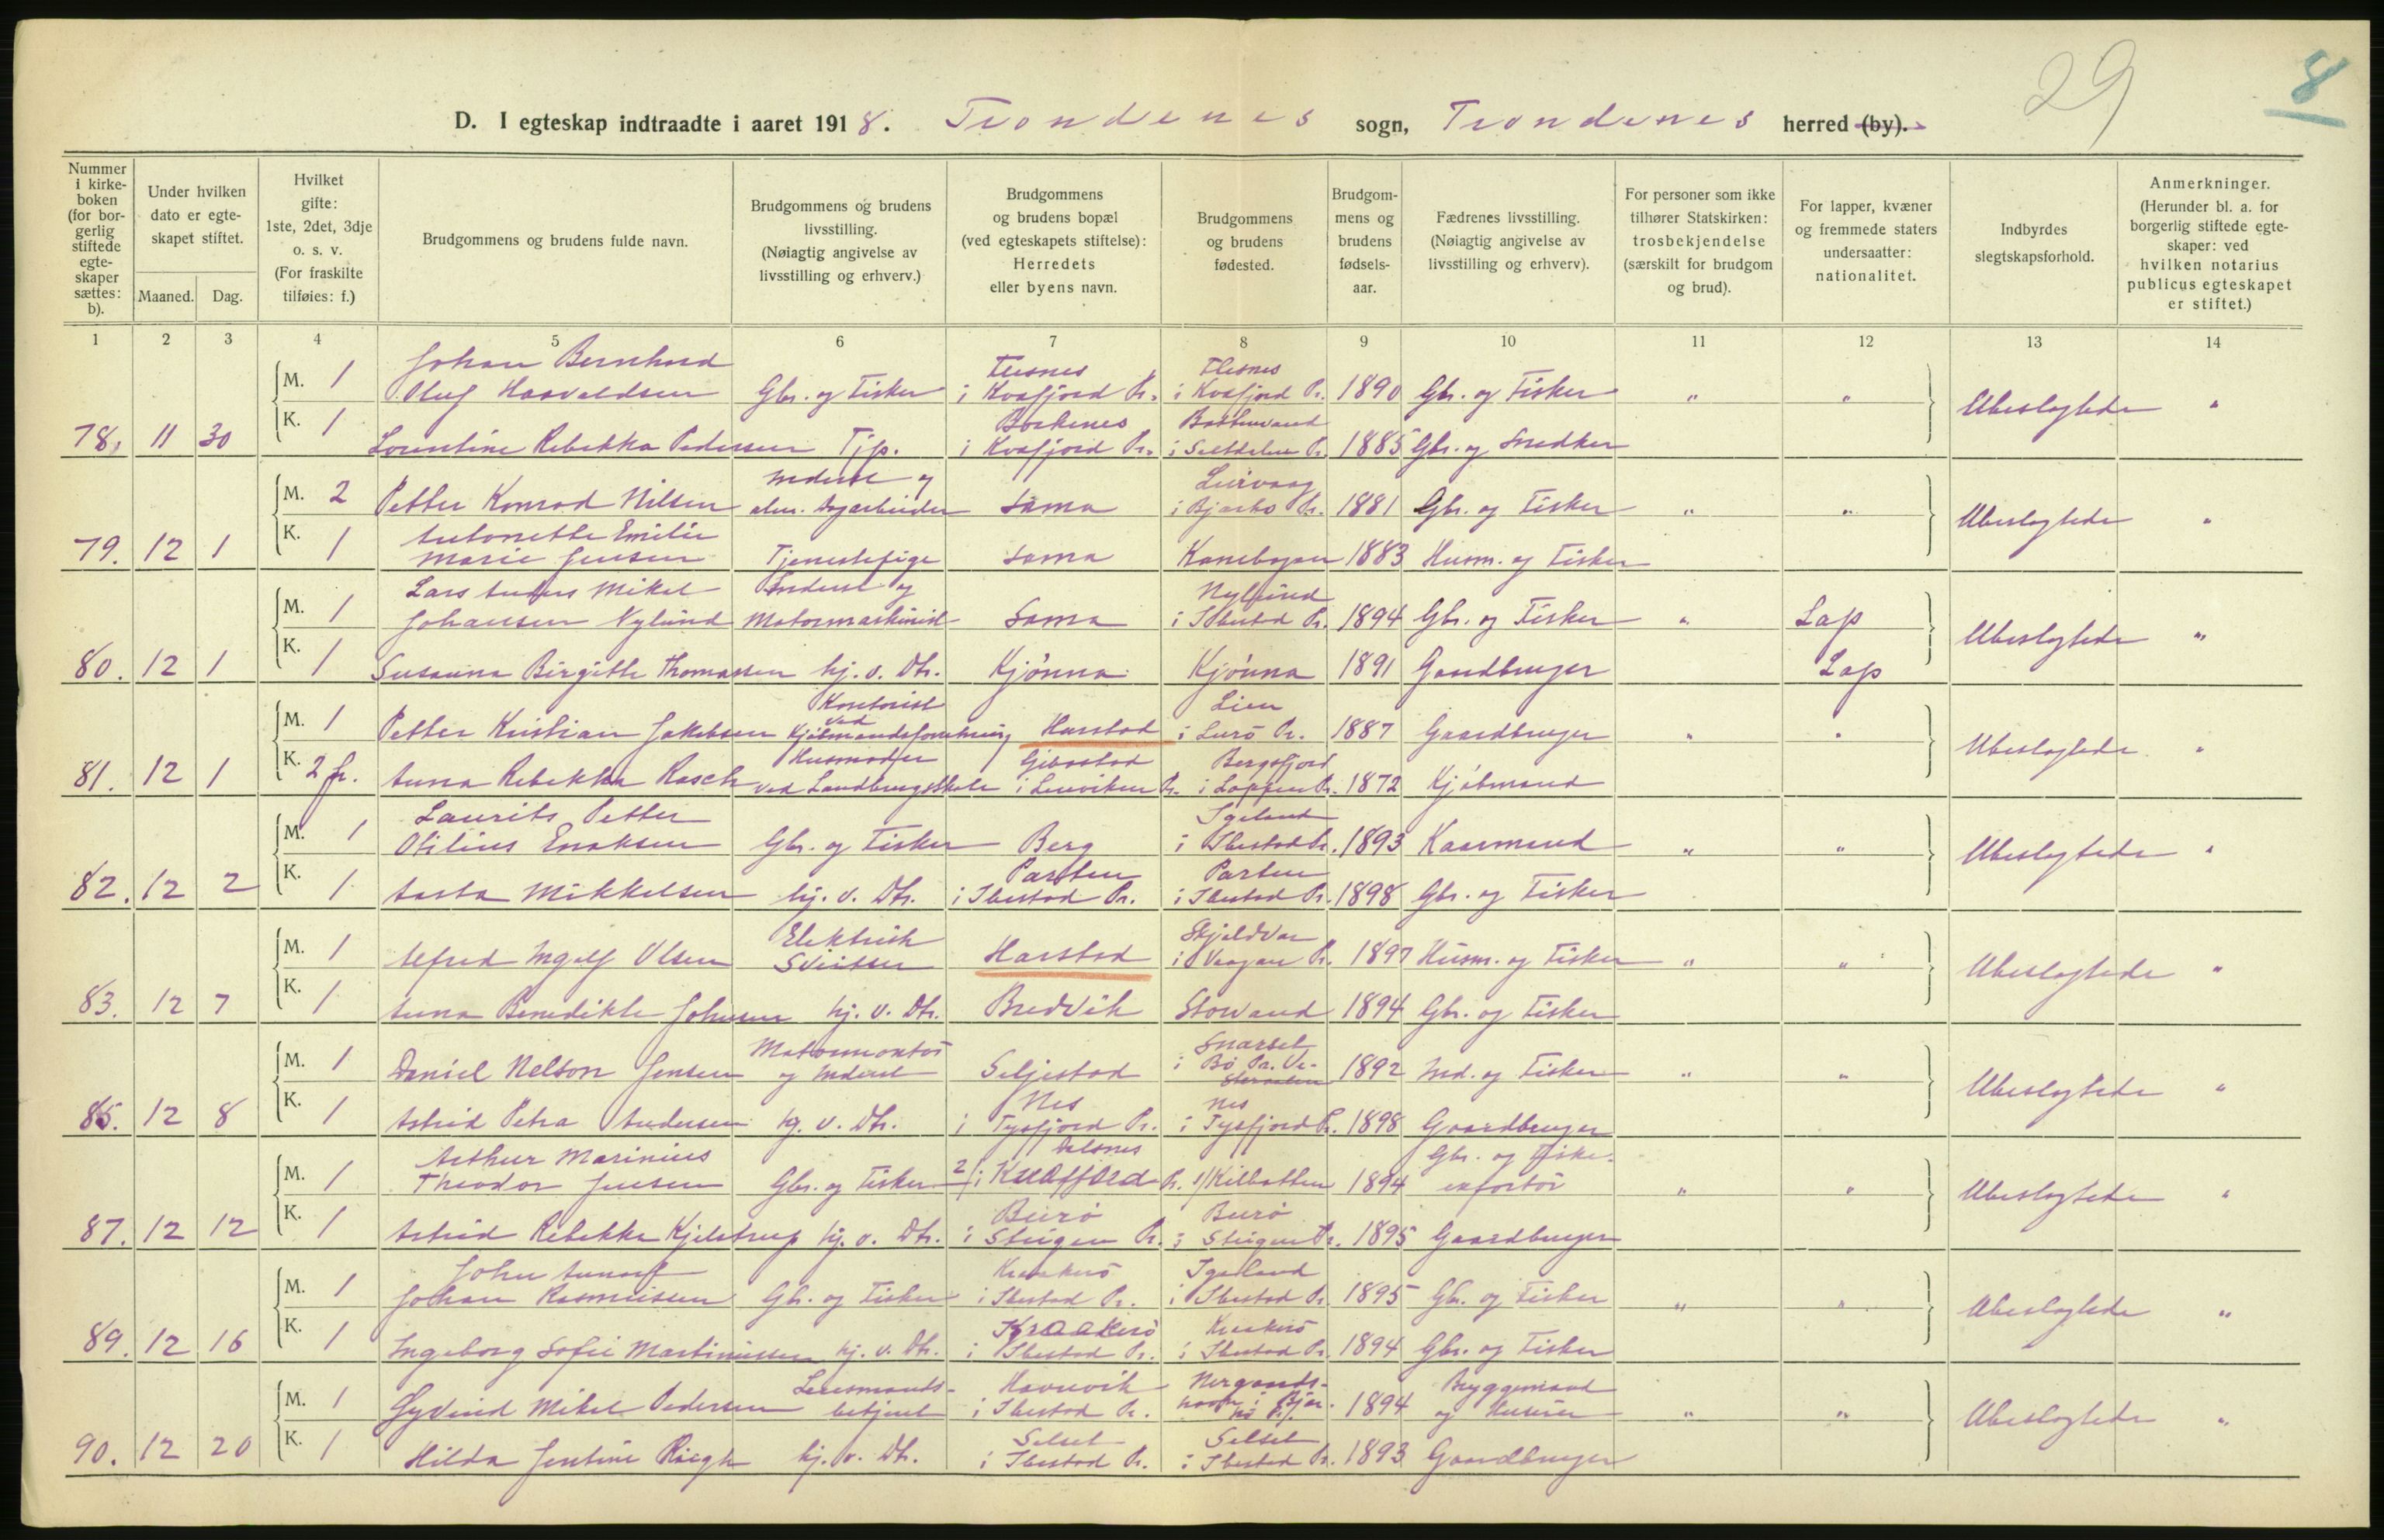 29
8
D. I egteskap indtraadte i aaret 1918. Trondenes sogn, Trondenes herred (by).
Nummer i kirkeboken (for borgerlig stiftede egteskaper sættes: b).
Under hvilken dato er egteskapet stiftet.
Maaned. Dag.
Hvilket gifte: 1ste, 2det, 3dje o. s. v. (For fraskilte tilføies: f.)
Brudgommens og brudens fulde navn.
Brudgommens og brudens livsstilling. (Nøiagtig angivelse av livsstilling og erhverv.)
Brudgommens og brudens bopæl (ved egteskapets stiftelse): Herredets eller byens navn.
Brudgommens og brudens fødested.
Brudgommens og brudens fødselsaar.
Fædrenes livsstilling. (Nøiagtig angivelse av livsstilling og erhverv).
For personer som ikke tilhører Statskirken: trosbekjendelse (særskilt for brudgom og brud).
For lapper, kvæner og fremmede staters undersaatter: nationalitet.
Indbyrdes slegtskapsforhold.
Anmerkninger. (Herunder bl. a. for borgerlig stiftede egteskaper: ved hvilken notarius publicus egteskapet er stiftet.)
1 2 3 4 5 6 7 8 9 10 11 12 13 14
M. 1 Johan Bernhard Oluf Haavaldsen Gbr. og Fisker Flesnes i Kvæfjord Pr. Flesnes i Kvæfjord Pr. 1890 Gbr. og Fisker " " Ubeslegtede "
78. 11 30 K. 1 Lorentine Rebekka Pedersen Tjp. Borkenes i Kvæfjord Pr. Botnvand i Saltdalen Pr. 1885 Gbr. og Snedker
M. 2 Petter Konrad Nilsen Inderst og alm. dagarbeider Sama Leirvaag i Bjarkø Pr. 1881 Gbr. og Fisker " " Ubeslegtede "
79. 12 1 K. 1 Antonette Emilie Marie Jensen Tjenestepige Sama Kanebogen 1883 Husm. og Fisker
M. 1 Lars Anders Mikal Johansen Nylund Inderst og Motormaskinist Sama Nylund i Ibestad Pr. 1894 Gbr. og Fisker " Lap Ubeslegtede "
80. 12 1 K. 1 Susanna Birgitte Thomassen hj. v. Dtr. Kjönna Kjönna 1891 Gaardbruger Lap
M. 1 Petter Kristian Jakobsen Kontorist ved Kjøbmandsforretning Harstad Lien i Lurö Pr. 1887 Gaardbruger " " Ubeslegtede "
81. 12 1 K. 2 fr. Anna Rebekka Rasch Husmoder ved Landbrugsskole Gibostad i Lenviken Pr. Bergsfjord i Loppen Pr. 1872 Kjøbmand
M. 1 Laurits Petter Otilius Enoksen Gbr. og Fisker Berg Igeland i Ibestad Pr. 1893 Kaarmand " " Ubeslegtede "
82. 12 2 K. 1 Aasta Mikkelsen hj. v. Dtr. Parsten i Ibestad Pr. Parsten i Ibestad Pr. 1898 Gbr. og Fisker
M. 1 Alfred Ingolf Olsen Elektrisk Sveitser Harstad Skjeldvar i Vaagan Pr. 1897 Husm. og Fisker " " Ubeslegtede "
83. 12 7 K. 1 Anna Benedikte Johnsen hj. v. Dtr. Bredvik Storvand 1894 Gbr. og Fisker
M. 1 Daniel Nelson Jensen Motormontör og Inderst Seljestad Snarset i Bö Pr. Ve- 1892 Ind. og Fisker " " Ubeslegtede "
85. 12 8 K. 1 Astrid Petra Andersen hj. v. Dtr. Nes i Tysfjord Pr. Nes i Tysfjord Pr. 1898 Gaardbruger
M. 1 Arthur Marinius Theodor Jensen Gbr. og Fisker 2/ Dalsnes i Kvæfjord Pr. 1/ Kilbotten 1894 Gbr. og Fiskeexportör " " Ubeslegtede "
87. 12 12 K. 1 Astrid Rebekka Kjelstrup hj. v. Dtr. Burö i Steigen Pr. Burö i Steigen Pr. 1895 Gaardbruger
M. 1 John Annanf Johan Rasmussen Gbr. og Fisker Kraakerö i Ibestad Pr. Igeland i Ibestad Pr. 1895 Gbr. og Fisker " " Ubeslegtede "
89. 12 16 K. 1 Ingeborg Sofie Martinussen hj. v. Dtr. Kraakerö i Ibestad Pr. Kraakerö i Ibestad Pr. 1894 Gbr. og Fisker
M. 1 Eyvind Mikal Pedersen Lensmandsbetjent Havnvik i Ibestad Pr. Nergaardshavn i Bjarkö Pr. 1894 Bryggemand og Huseier " " Ubeslegtede "
90. 12 20 K. 1 Hilda Jentine Riegh hj. v. Dtr. Selset i Ibestad Pr. Selset i Ibestad Pr. 1893 Gaardbruger